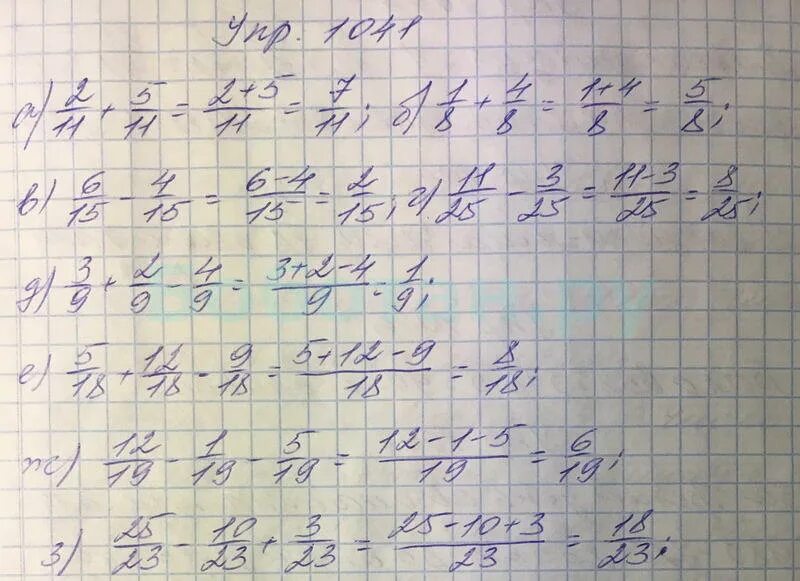 Упр. 1041
а) 2/11 + 5/11 = 2+5/11 = 7/11; б) 1/8 + 4/8 = 1+4/8 = 5/8;
в) 6/15 - 4/15 = 6-4/15 = 2/15; г) 11/25 - 3/25 = 11-3/25 = 8/25;
д) 3/9 + 2/9 - 4/9 = 3+2-4/9 = 1/9;
е) 5/18 + 12/18 - 9/18 = 5+12-9/18 = 8/18;
ж) 12/19 - 1/19 - 5/19 = 12-1-5/19 = 6/19;
з) 25/23 - 10/23 + 3/23 = 25-10+3/23 = 18/23;